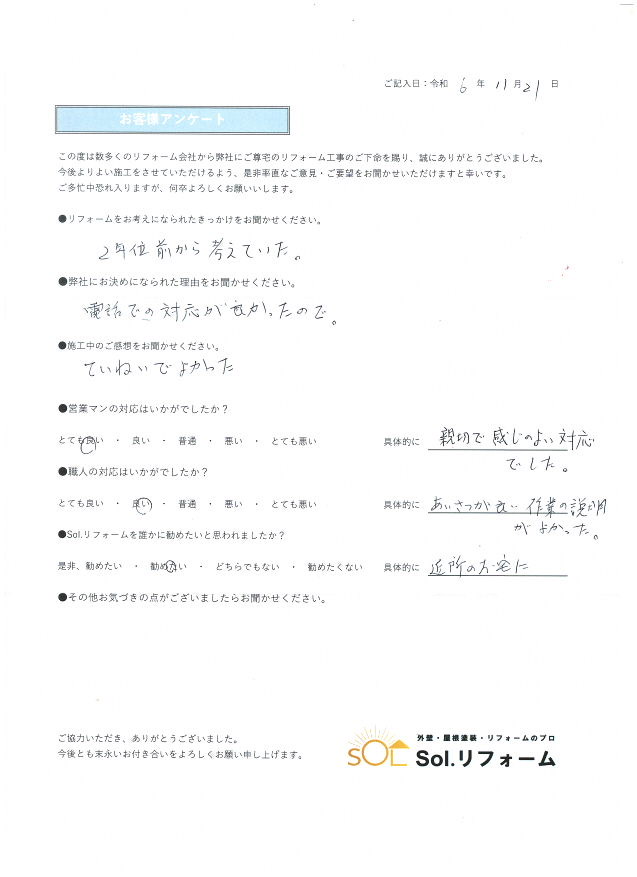 ご記入日：令和 6 年 11 月 21 日
お客様アンケート
この度は数多くのリフォーム会社から弊社にご尊宅のリフォーム工事のご下命を賜り、誠にありがとうございました。
今後よりよい施工をさせていただけるよう、是非率直なご意見・ご要望をお聞かせいただけますと幸いです。
ご多忙中恐れ入りますが、何卒よろしくお願いいします。
●リフォームをお考えになられたきっかけをお聞かせください。
2年位前から考えていた。
●弊社にお決めになられた理由をお聞かせください。
電話での対応が良かったので。
●施工中のご感想をお聞かせください。
ていねいでよかった
●営業マンの対応はいかがでしたか？
とても良い ・ 良い ・ 普通 ・ 悪い ・ とても悪い 具体的に 親切で感じのよい対応
でした。
●職人の対応はいかがでしたか？
とても良い ・ 良い ・ 普通 ・ 悪い ・ とても悪い 具体的に あいさつが良い 作業の説明
がよかった。
●Sol.リフォームを誰かに勧めたいと思われましたか？
是非、勧めたい ・ 勧めたい ・ どちらでもない ・ 勧めたくない 具体的に 近所のお宅に
●その他お気づきの点がございましたらお聞かせください。
ご協力いただき、ありがとうございました。
今後とも末永いお付き合いをよろしくお願い申し上げます。
外壁・屋根塗装・リフォームのプロ
SOL Sol.リフォーム